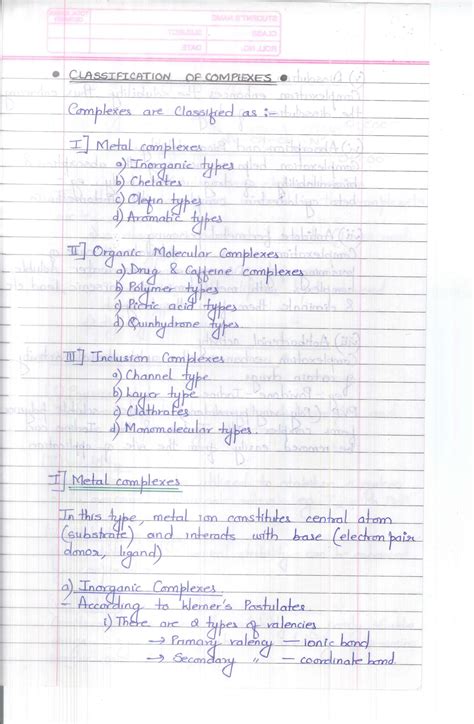 • CLASSIFICATION OF COMPLEXES •
Complexes are Classified as :-
I] Metal complexes
a) Inorganic types
b) Chelates
c) Olefin types
d) Aromatic types
II] Organic Molecular Complexes
a) Drug & Caffeine complexes
b) Polymer types
c) Picric acid types
d) Quinhydrone types.
III] Inclusion Complexes
a) Channel type
b) Layer type
c) Clathrates
d) Monomolecular types.
I] Metal complexes
In this type, metal ion constitutes central atom
(substrate) and interacts with base (electron pair
donor, ligand)
a) Inorganic Complexes
- According to Werner's Postulates
i) There are 2 types of valencies
→ Primary valency — ionic bond
→ Secondary " — coordinate bond